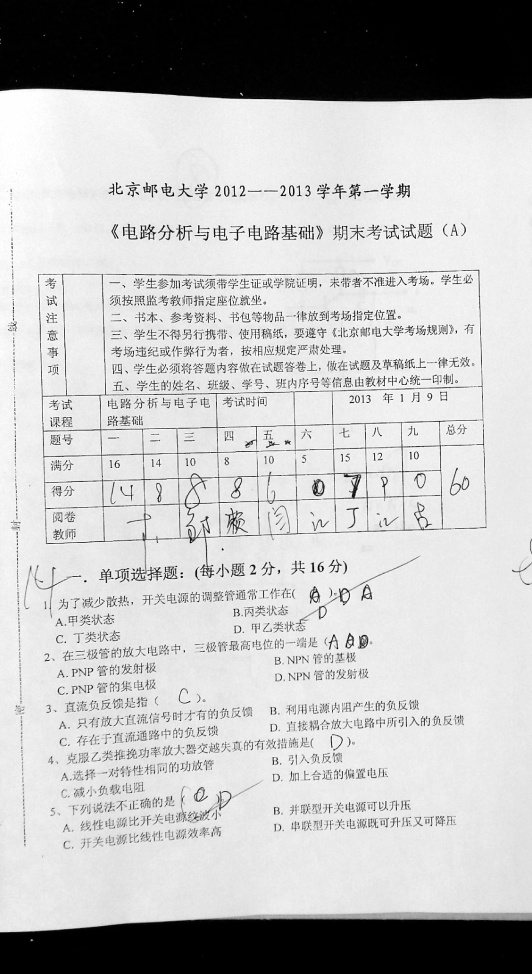 北京邮电大学2012——2013学年第一学期
《电路分析与电子电路基础》期末考试试题（A）
考试注意事项
一、学生参加考试须带学生证或学院证明，未带者不准进入考场。学生必
须按照监考教师指定座位就坐。
二、书本、参考资料、书包等物品一律放到考场指定位置。
三、学生不得另行携带、使用稿纸，要遵守《北京邮电大学考场规则》，有
考场违纪或作弊行为者，按相应规定严肃处理。
四、学生必须将答题内容做在试题答卷上，做在试题及草稿纸上一律无效。
五、学生的姓名、班级、学号、班内序号等信息由教材中心统一印制。
考试课程 电路分析与电子电路基础 考试时间 2013 年 1 月 9 日
题号 一 二 三 四 五 六 七 八 九 总分
满分 16 14 10 8 10 5 15 12 10
得分 14 8 8 8 6 0 7 9 0 60
阅卷教师
14
一．单项选择题：(每小题2分，共16分)
1、为了减少散热，开关电源的调整管通常工作在( )。D A
A.甲类状态 B.丙类状态 D
C. 丁类状态 D. 甲乙类状态
2、在三极管的放大电路中，三极管最高电位的一端是（A ）。
A. PNP 管的发射极 B. NPN 管的基极
C. PNP 管的集电极 D. NPN 管的发射极
3、直流负反馈是指（ C ）。
A. 只有放大直流信号时才有的负反馈 B. 利用电源内阻产生的负反馈
C. 存在于直流通路中的负反馈 D. 直接耦合放大电路中所引入的负反馈
4、克服乙类推挽功率放大器交越失真的有效措施是( D )。
A.选择一对特性相同的功放管 B. 引入负反馈
C. 减小负载电阻 D. 加上合适的偏置电压
5、下列说法不正确的是（ D
A. 线性电源比开关电源纹波小 B. 并联型开关电源可以升压
C. 开关电源比线性电源效率高 D. 串联型开关电源既可升压又可降压